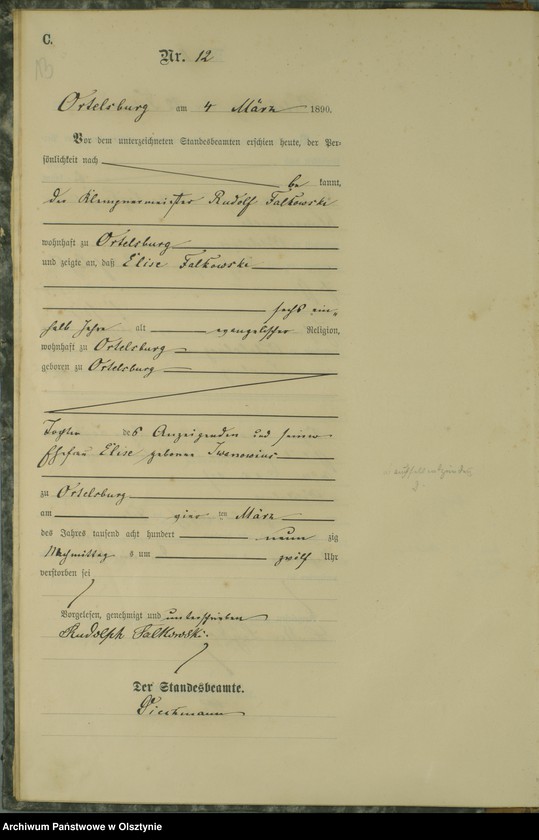 C.
Nr. 12
Ortelsburg am 4 März 1890.
Vor dem unterzeichneten Standesbeamten erschien heute, der Per-
sönlichkeit nach
be kannt,
der Klempnermeister Rudolf Falkowski
wohnhaft zu Ortelsburg
und zeigte an, daß Elise Falkowski
sechs ein-
halb Jahre alt evangelischer Religion,
wohnhaft zu Ortelsburg
geboren zu Ortelsburg
Tochter des Anzeigenden und seiner
Ehefrau Elise, geborene
zu Ortelsburg
am vier ten März
des Jahres tausend acht hundert neun zig
Nachmittags um zwölf Uhr
verstorben sei
Vorgelesen, genehmigt und unterschrieben
Rudolph Falkowski.
Der Standesbeamte.
Archiwum Państwowe w Olsztynie